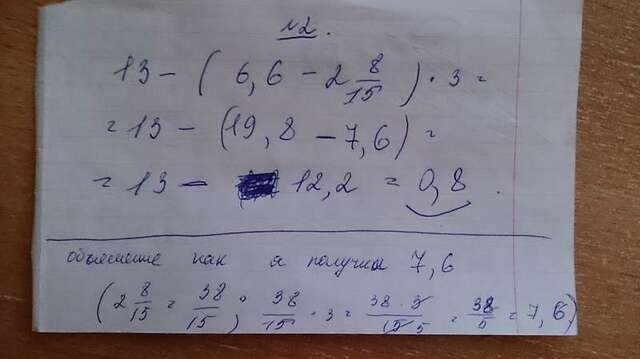 №2.
13 - (6,6 - 2 8/15) · 3 =
= 13 - (19,8 - 7,6) =
= 13 - 12,2 = 0,8.
объяснение как я получила 7,6
(2 8/15 = 38/15; 38/15 · 3 = 38·3/15 5 = 38/5 = 7,6)